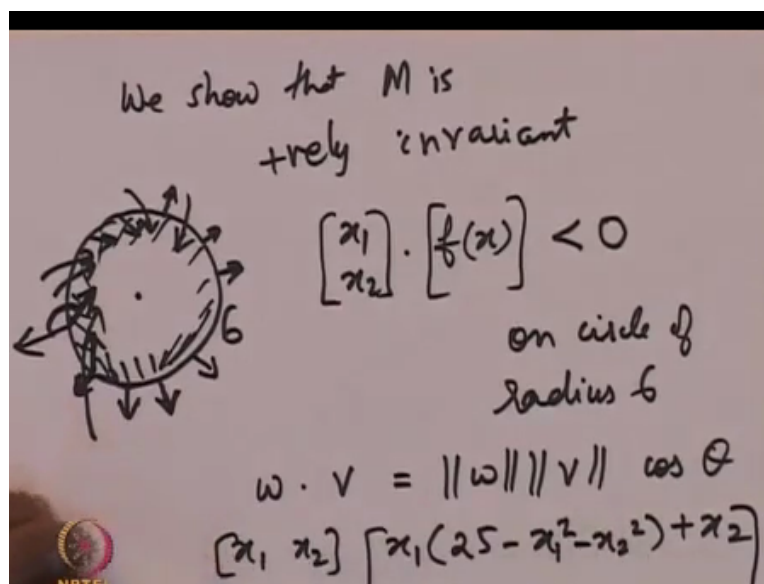 We show that M is
+vely invariant
[x₁ x₂] · [f(x)] < 0
6
on circle of
radius 6
w · v = ||w|| ||v|| cos θ
[x₁ x₂] [x₁(25 - x₁² - x₂²) + x₂]
NPTEL